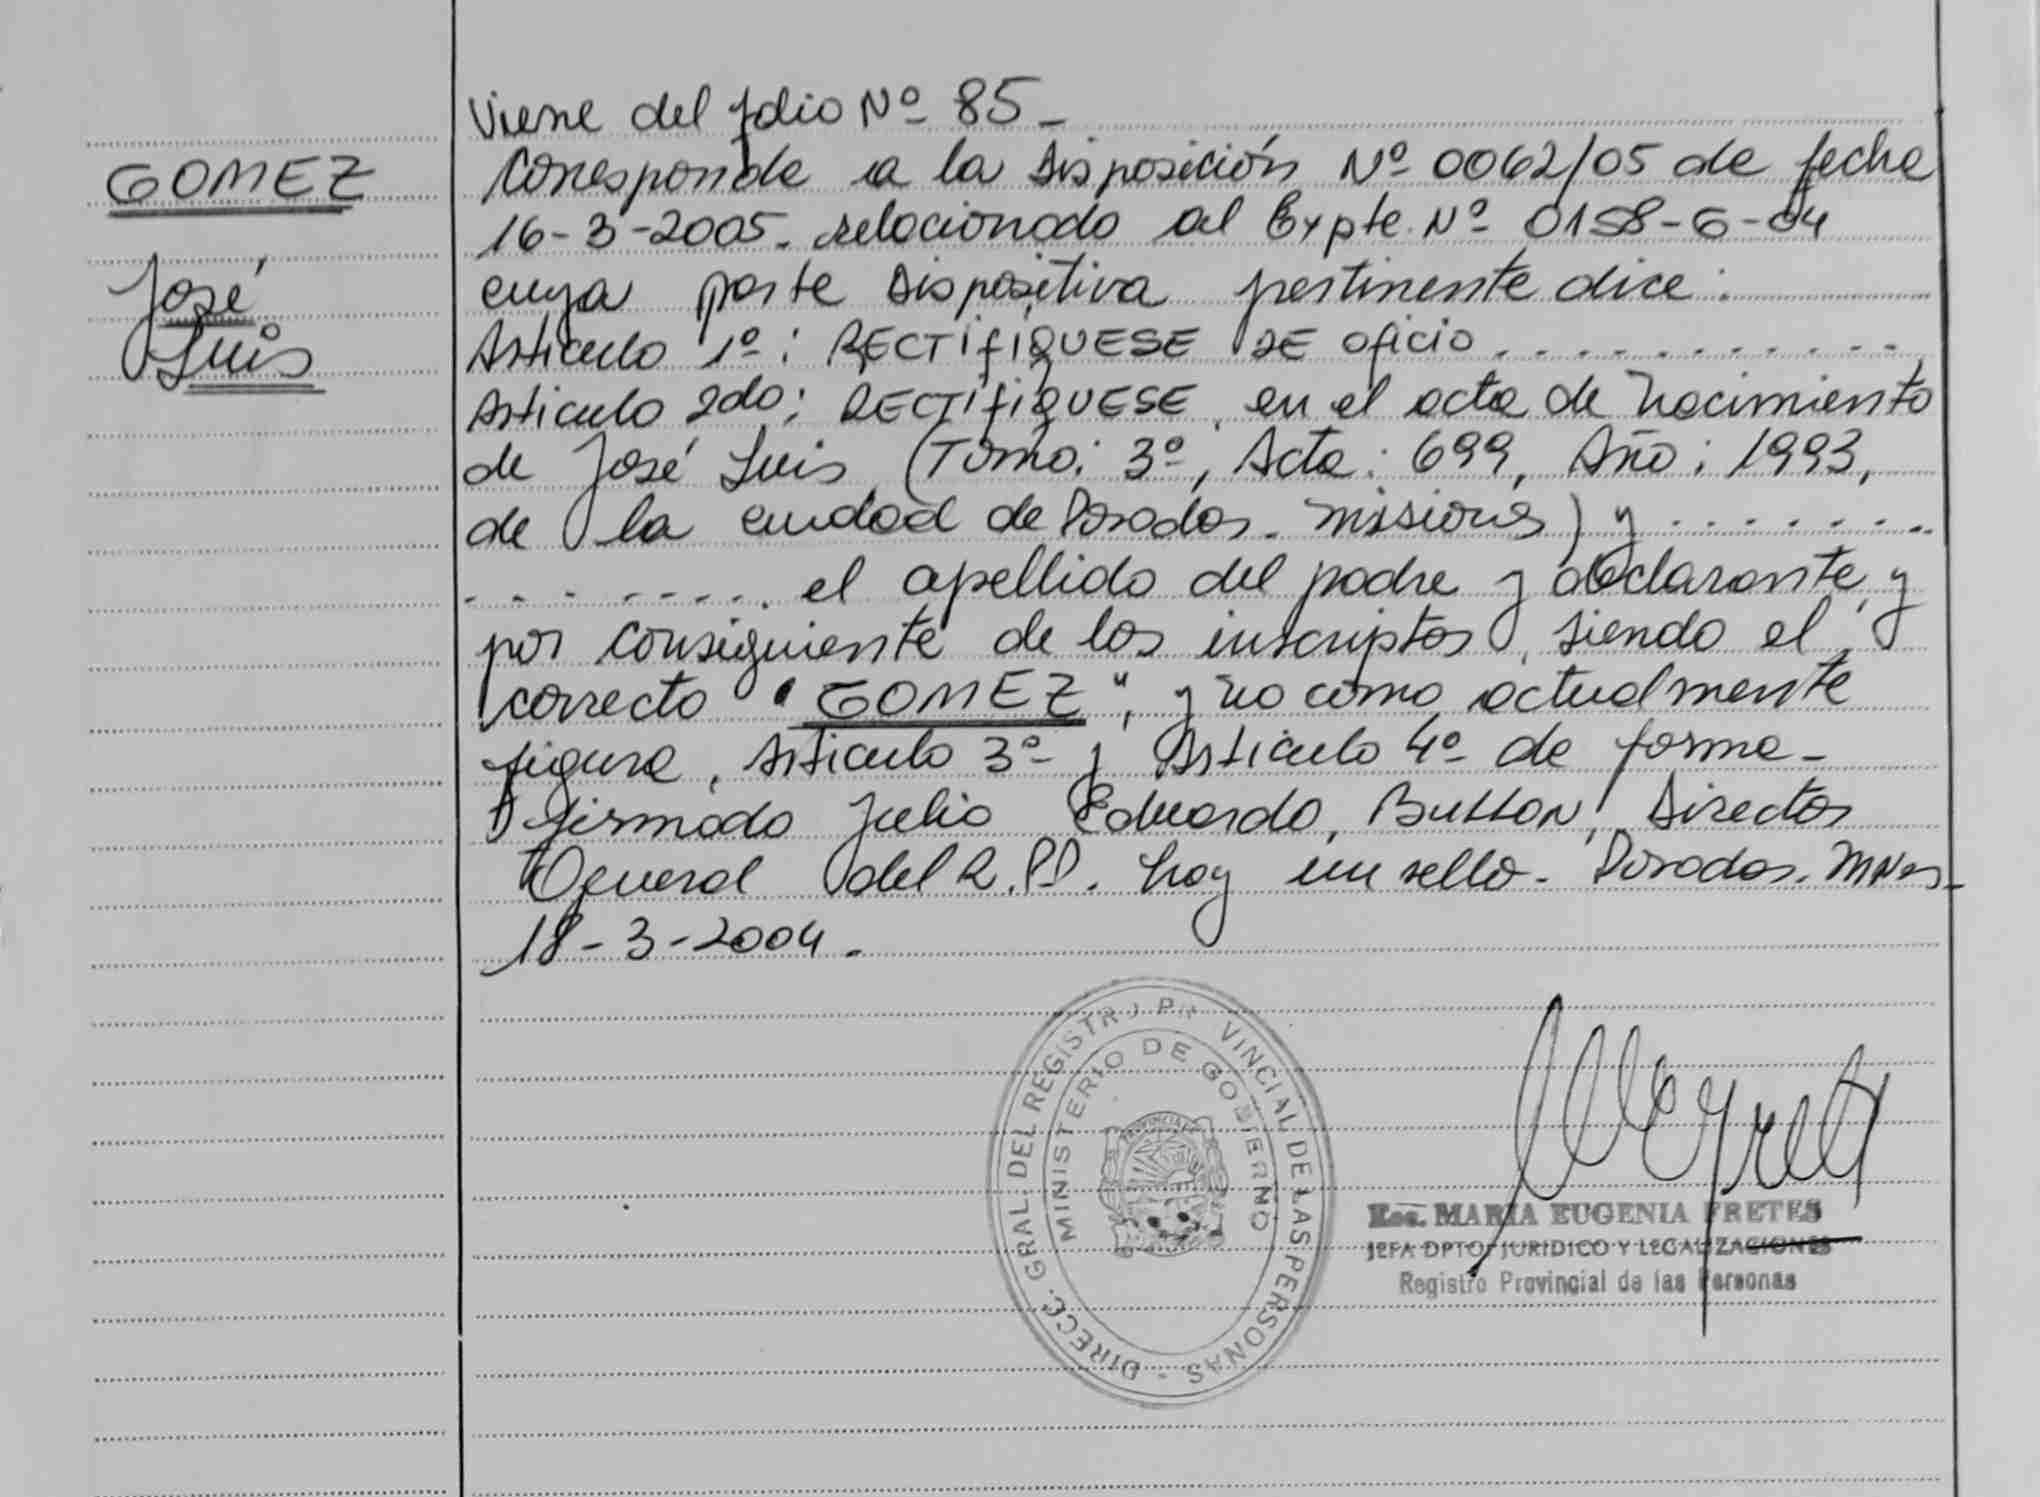 GOMEZ
José
Luis
Viene del folio Nº 85_
Corresponde a la Disposición Nº 0062/05 de fecha
16-3-2005. relacionado al Expte. Nº 0158-G-04
cuya parte dispositiva pertinente dice:
Articulo 1º: RECTIFIQUESE DE oficio . . . . . . . . . . . .
Articulo 2do: RECTIFIQUESE, en el acta de nacimiento
de José Luis (Tomo: 3º, Acta: 699, Año: 1993,
de la ciudad de Posadas. Misiones) y . . . . . . . .
. . . . . . . . . el apellido del padre y declarante, y
por consiguiente de los inscriptos, siendo el
correcto "GOMEZ", y no como actualmente
figura, Articulo 3º y Articulo 4º de forma_
firmado Julio Eduardo, Button, Director
General del R.P.P. hay un sello. Posadas. MNes_
18-3-2004.
DIRECC. GRAL. DEL REGISTRO PROVINCIAL DE LAS PERSONAS -
MINISTERIO DE GOBIERNO
Esc. MARIA EUGENIA FRETES
JEFA DPTO. JURIDICO Y LEGALIZACIONES
Registro Provincial de las Personas